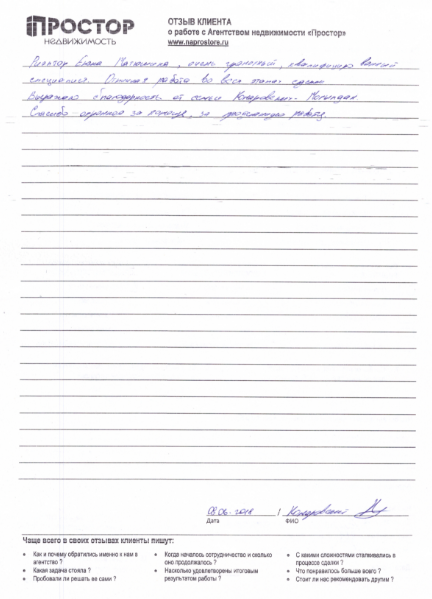 ПРОСТОР
НЕДВИЖИМОСТЬ
ОТЗЫВ КЛИЕНТА
о работе с Агентством недвижимости «Простор»
www.naprostore.ru
Риэлтор Елена, очень грамотный, квалифицированный
специалист. Отличная работа во всех этапах сделки
Выражаю благодарность от семьи
Спасибо огромное за помощь, за работу.
08.06.2018 /
Дата
ФИО
Чаще всего в своих отзывах клиенты пишут:
• Как и почему обратились именно к нам в агентство ?
• Какая задача стояла ?
• Пробовали ли решать ее сами ?
• Когда началось сотрудничество и сколько оно продолжалось ?
• Насколько удовлетворены итоговым результатом работы ?
• С какими сложностями сталкивались в процессе сделки ?
• Что понравилось больше всего ?
• Стоит ли нас рекомендовать другим ?